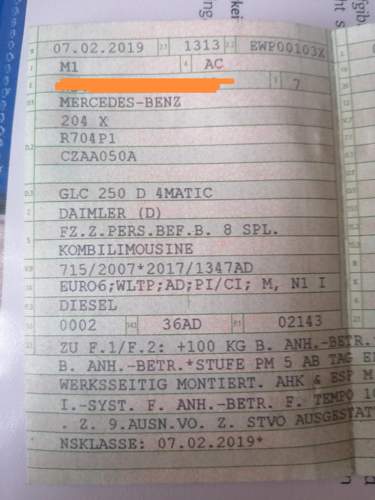 B 07.02.2019 2.1 1313 2.2 EWP00103X
J M1 4 AC
E 3 7
D.1 MERCEDES-BENZ
204 X
D.2 R704P1
CZAA050A
D.3 GLC 250 D 4MATIC
2 DAIMLER (D)
5 FZ.Z.PERS.BEF.B. 8 SPL.
KOMBILIMOUSINE
V.9 715/2007*2017/1347AD
14 EURO6;WLTP;AD;PI/CI; M, N1 I
P.3 DIESEL
10 0002 14.1 36AD P.1 02143
22 ZU F.1/F.2: +100 KG B. ANH.-BETR.
B. ANH.-BETR.*STUFE PM 5 AB TAG
WERKSSEITIG MONTIERT. AHK & ESP M
I.-SYST. F. ANH.-BETR. F. TEMPO
. Z. 9.AUSN.VO. Z. STVO AUSGESTAT
NSKLASSE: 07.02.2019*